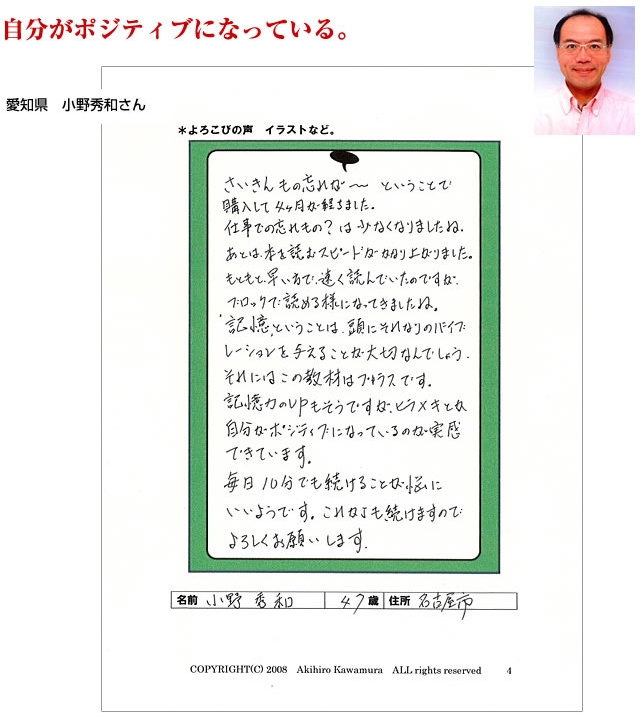 自分がポジティブになっている。
愛知県　小野秀和さん
＊よろこびの声　イラストなど。
さいきん もの忘れが〜 ということで
購入して 4ヶ月が経ちました。
仕事での忘れもの？は 少なくなりましたね。
あとは、本を読むスピードがかなり上がりました。
もともと、早い方で、速く読んでいたのですが、
ブロックで読める様になってきましたね。
"記憶"ということは、頭にそれなりのバイブ
レーションを与えることが大切なんでしょう。
それにはこの教材はプラスです。
記憶力のUPもそうですが、ヒラメキとか
自分がポジティブになっているのが実感
できています。
毎日 10分でも続けることが脳に
いいようです。これからも続けますので
よろしくお願いします。
名前 小野 秀和 47歳 住所 名古屋市
COPYRIGHT(C) 2008　Akihiro Kawamura　ALL rights reserved　4